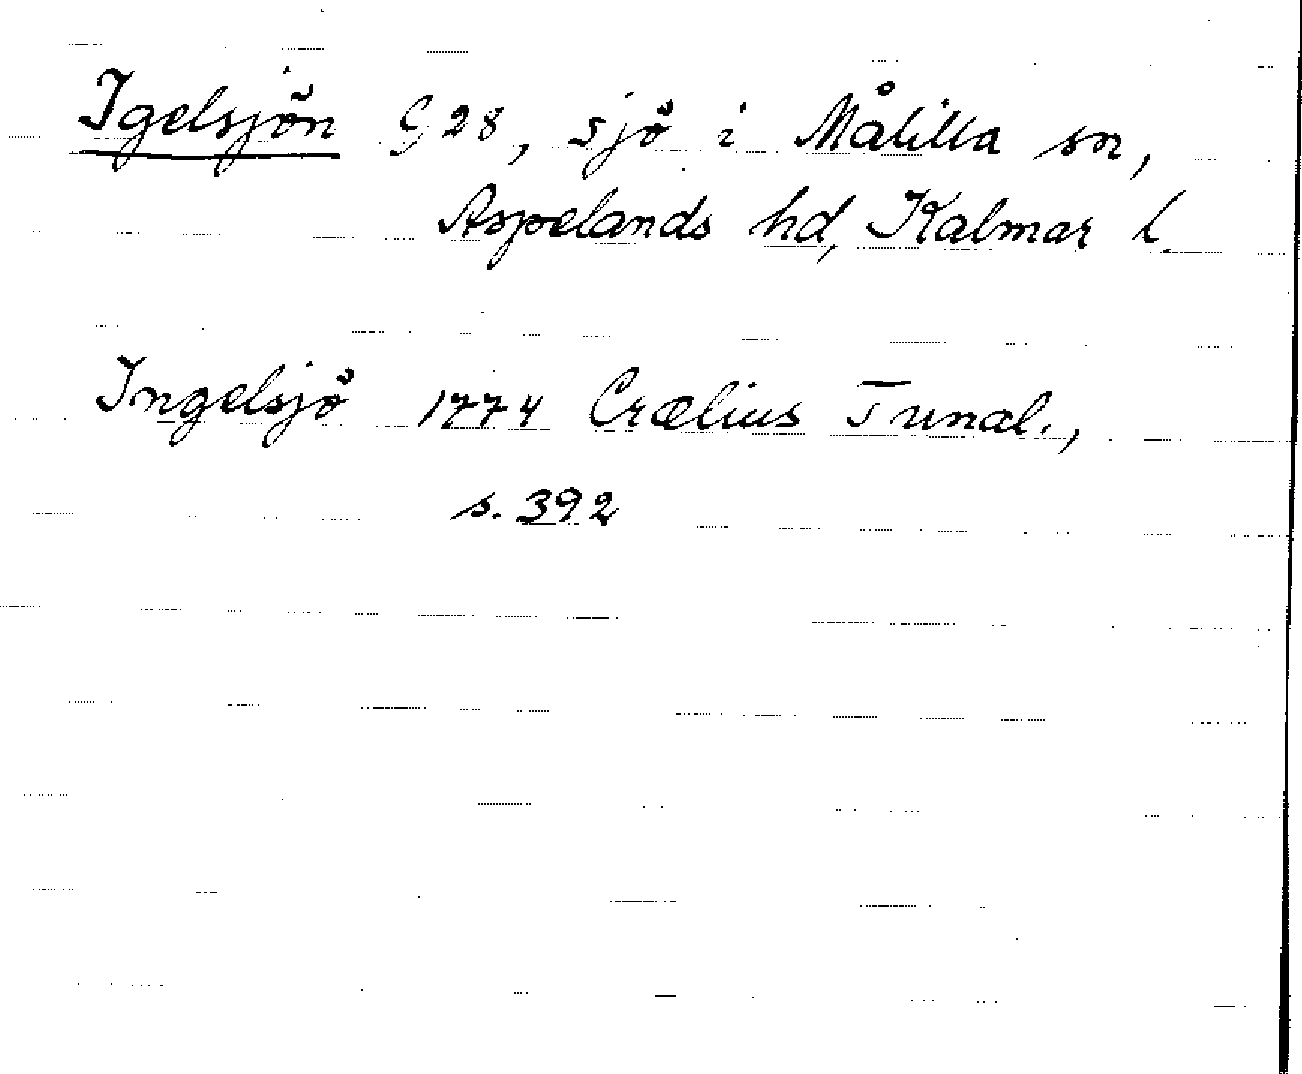 Igelsjön G28, sjö i Målilla sn,
Aspelands hd, Kalmar l.
Ingelsjö 1774 Crælius Tunal.,
s. 392